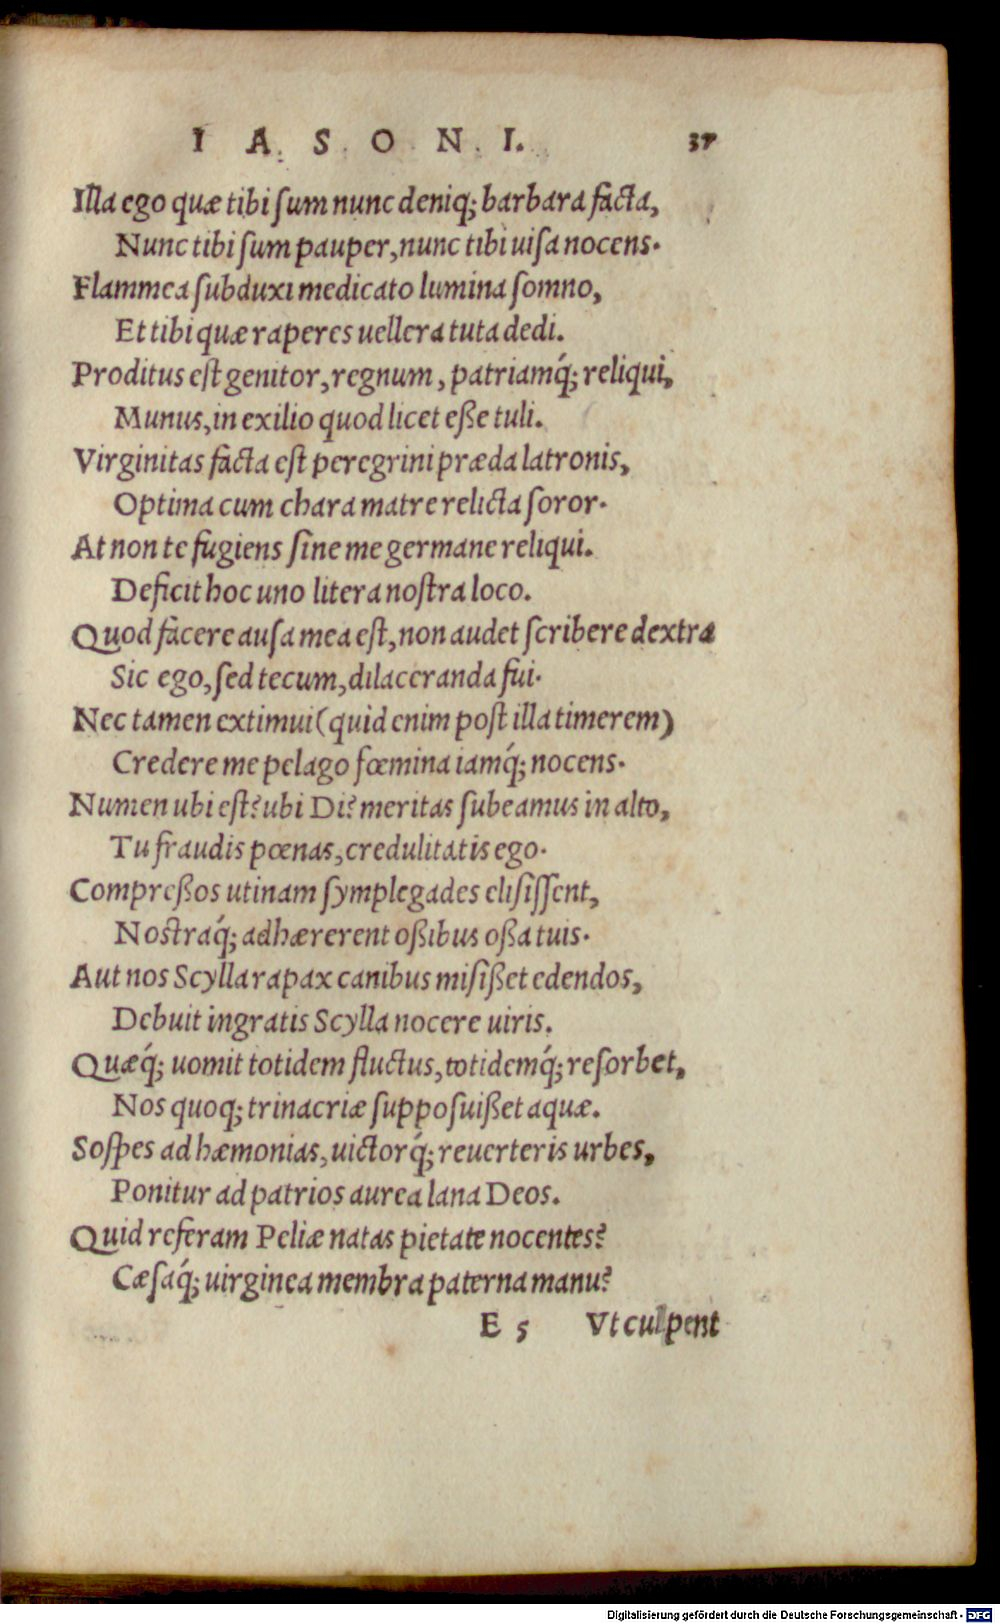 I A S O N I. 37
Illa ego quæ tibi sum nunc deniq; barbara facta,
Nunc tibi sum pauper, nunc tibi uisa nocens.
Flammea subduxi medicato lumina somno,
Et tibi quæ raperes uellera tuta dedi.
Proditus est genitor, regnum, patriamq́; reliqui,
Munus, in exilio quod licet eße tuli.
Virginitas facta est peregrini præda latronis,
Optima cum chara matre relicta soror.
At non te fugiens sine me germane reliqui.
Deficit hoc uno litera nostra loco.
Quod facere ausa mea est, non audet scribere dextra
Sic ego, sed tecum, dilaceranda fui.
Nec tamen extimui (quid enim post illa timerem)
Credere me pelago fœmina iamq́; nocens.
Numen ubi est? ubi Di? meritas subeamus in alto,
Tu fraudis pœnas, credulitatis ego.
Compreßos utinam symplegades elisissent,
Nostraq́; adhærerent oßibus oßa tuis.
Aut nos Scylla rapax canibus misißet edendos,
Debuit ingratis Scylla nocere uiris.
Quæq́; uomit totidem fluctus, totidemq́; resorbet,
Nos quoq; trinacriæ supposuißet aquæ.
Sospes ad hæmonias, uictorq́; reuerteris urbes,
Ponitur ad patrios aurea lana Deos.
Quid referam Peliæ natas pietate nocentes?
Cæsaq́; uirginea membra paterna manu?
E 5 Vt culpent
Digitalisierung gefördert durch die Deutsche Forschungsgemeinschaft - DFG